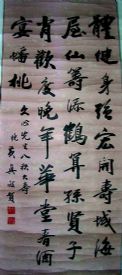 體健身強宏開壽域海
屋仙籌添鶴算孫賢子
肖歡度晚年華堂春酒
宴蟠桃
先生八秩大壽